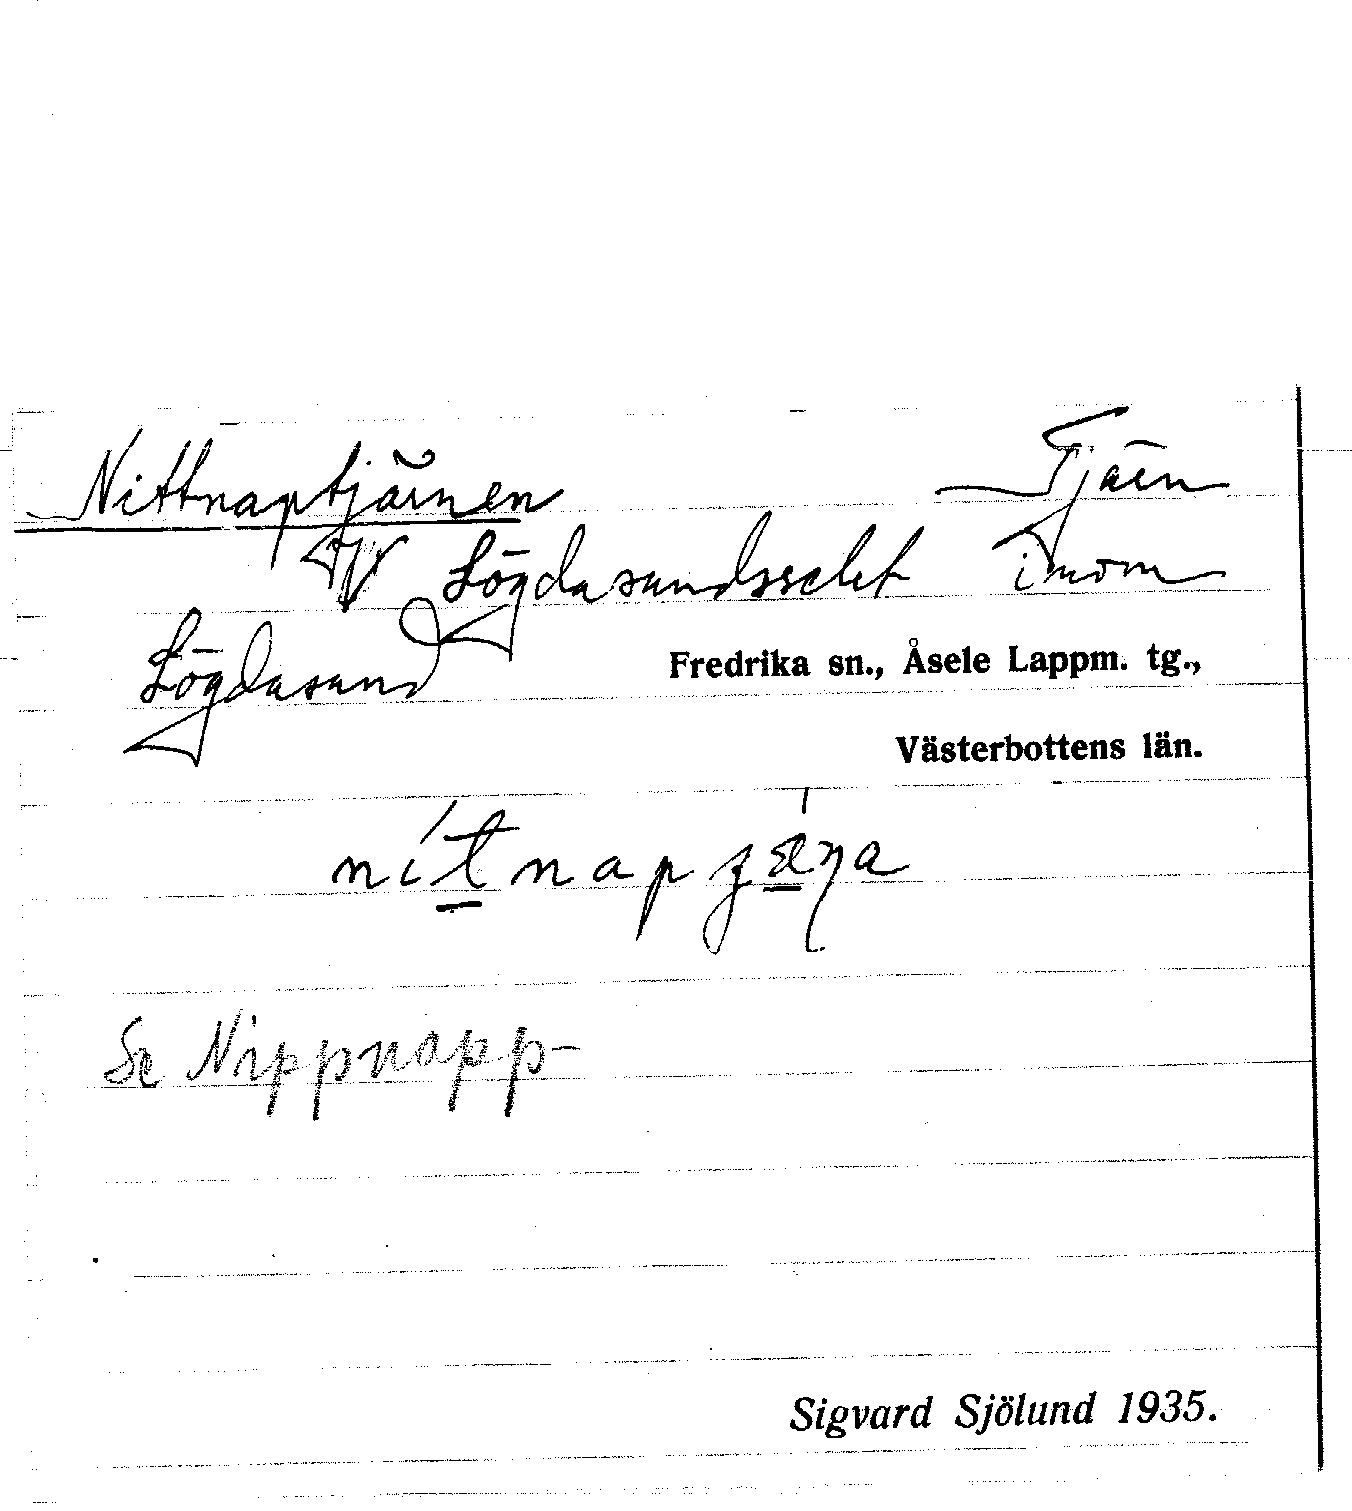 Nittnaptjärnen Tjärn
V Lögdasundsselet inom
Lögdasund Fredrika sn., Åsele Lappm. tg.,
Västerbottens län.
Se Nippnapp-
Sigvard Sjölund 1935.